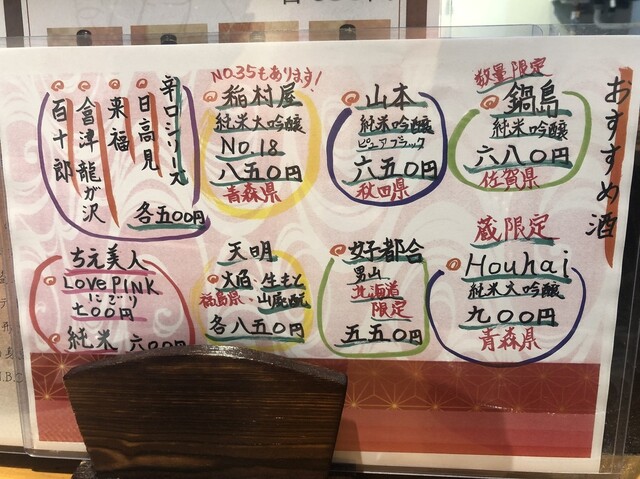 おすすめ酒
数量限定
鍋島
純米吟醸
六八〇円
佐賀県
山本
純米吟醸
ピュアブラック
六五〇円
秋田県
NO.35もあります!
稲村屋
純米大吟醸
NO.18
八五〇円
青森県
辛口シリーズ
日高見
来福
會津龍が沢
百十郎
各五〇〇円
蔵限定
Houhai
純米大吟醸
九〇〇円
青森県
好都合
男山
北海道
限定
五五〇円
天明
火入・生もと
福島県・山廃酛
各八五〇円
ち元美人
LOVE PINK
にごり
七〇〇円
純米 六〇〇円